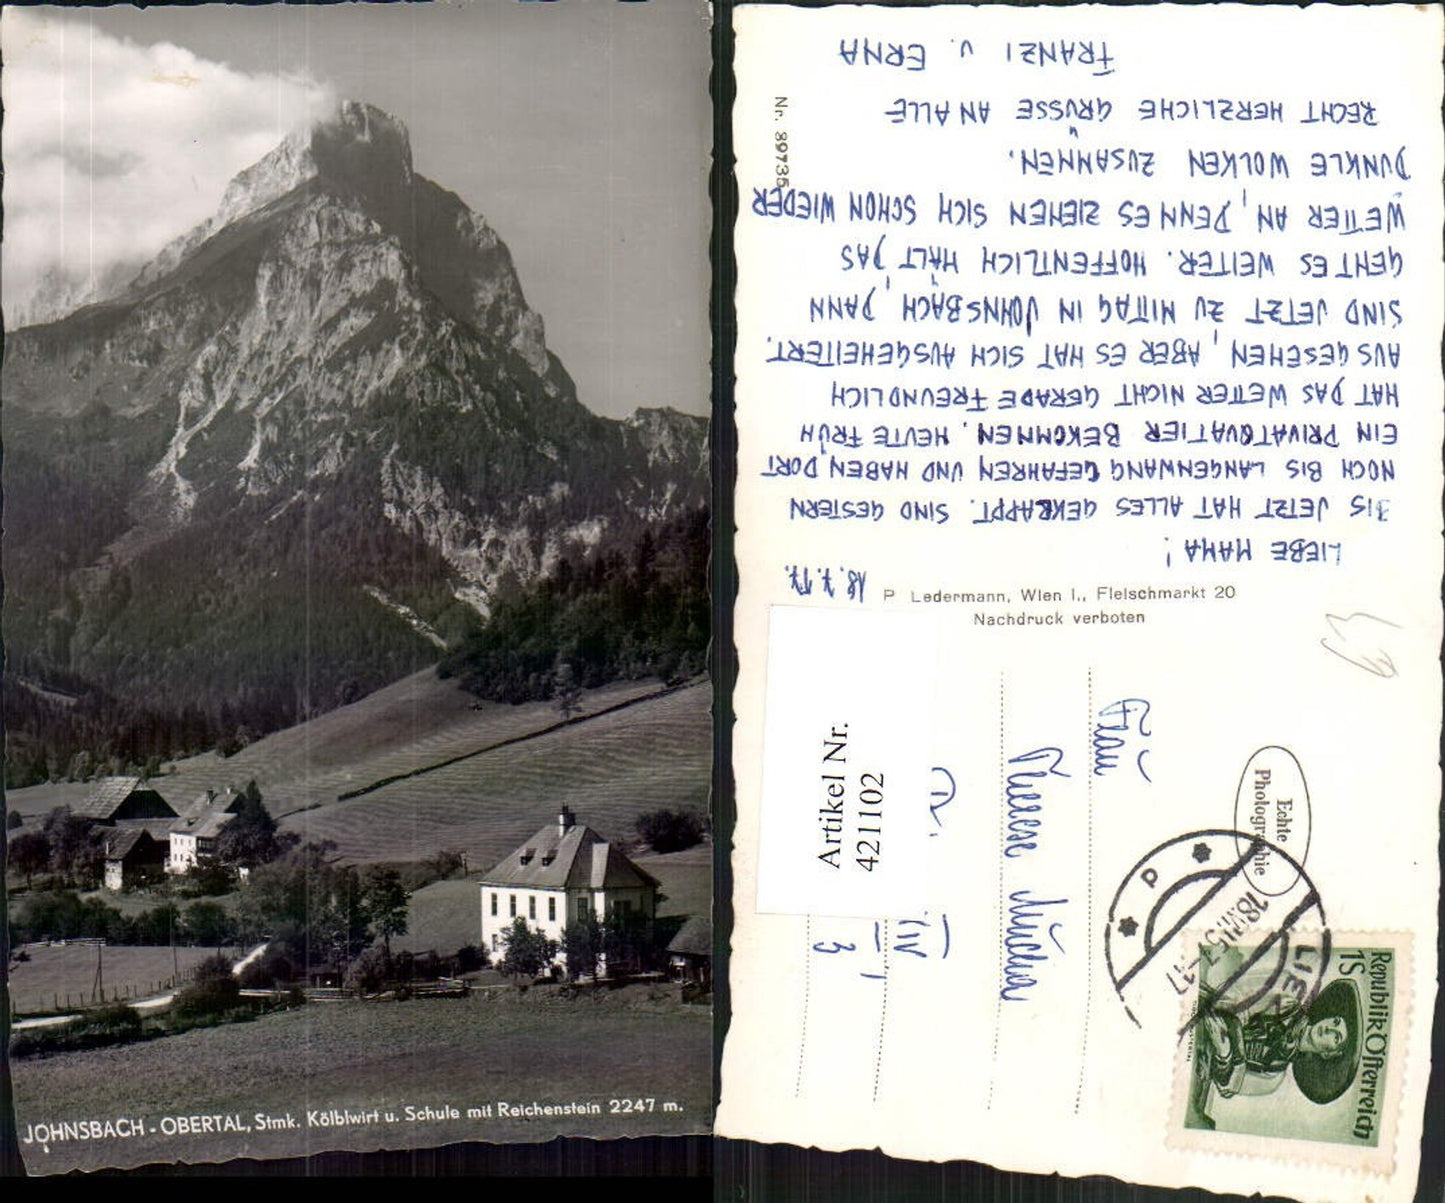 JOHNSBACH - OBERTAL, Stmk. Kölblwirt u. Schule mit Reichenstein 2247 m.
18.7.
LIEBE MAMA!
BIS JETZT HAT ALLES GEKLAPPT. SIND GESTERN
NOCH BIS LANGENWANG GEFAHREN UND HABEN DORT
EIN PRIVATQUATIER BEKOMMEN. HEUTE FRÜH
HAT DAS WETTER NICHT GERADE FREUNDLICH
AUSGESEHEN, ABER ES HAT SICH AUSGEHEITERT.
SIND JETZT ZU MITTAG IN JOHNSBACH, DANN
GEHT ES WEITER. HOFFENTLICH HÄLT DAS
WETTER AN, DENN ES ZIEHEN SICH SCHON WIEDER
DUNKLE WOLKEN ZUSAMMEN.
RECHT HERZLICHE GRÜSSE AN ALLE
FRANZI u. ERNA
Nr. 89735
P. Ledermann, Wien I., Fleischmarkt 20
Nachdruck verboten
Echte
Photographie
Frau
Artikel Nr.
421102
P
LIE
Republik Österreich
1S